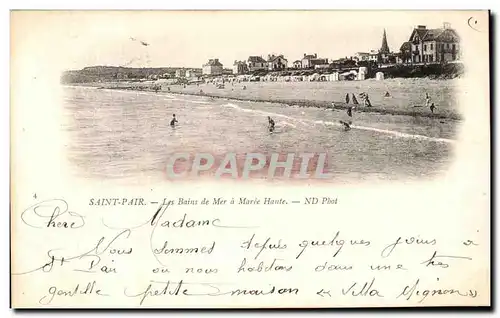 SAINT-PAIR. — Les Bains de Mer à Marée Haute. — ND Phot
CPHPHI
Chère Madame
Nous sommes depuis quelques jours à
St Pair où nous habitons dans une très
gentille petite maison « Villa Mignon »